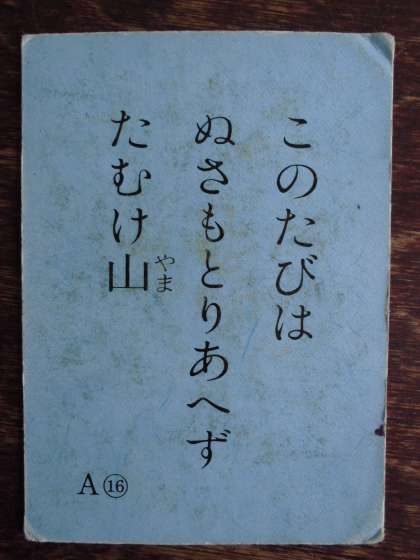 このたびは
ぬさもとりあへず
たむけ山
やま
A⑯